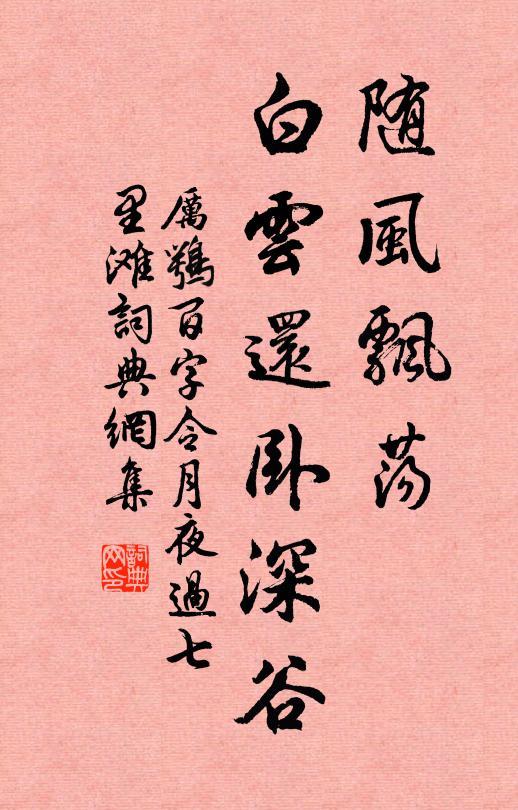 随風飄蕩
白雲還卧深谷
厲鶚百字令月夜過七
里滩詞典網集
詞典
网印